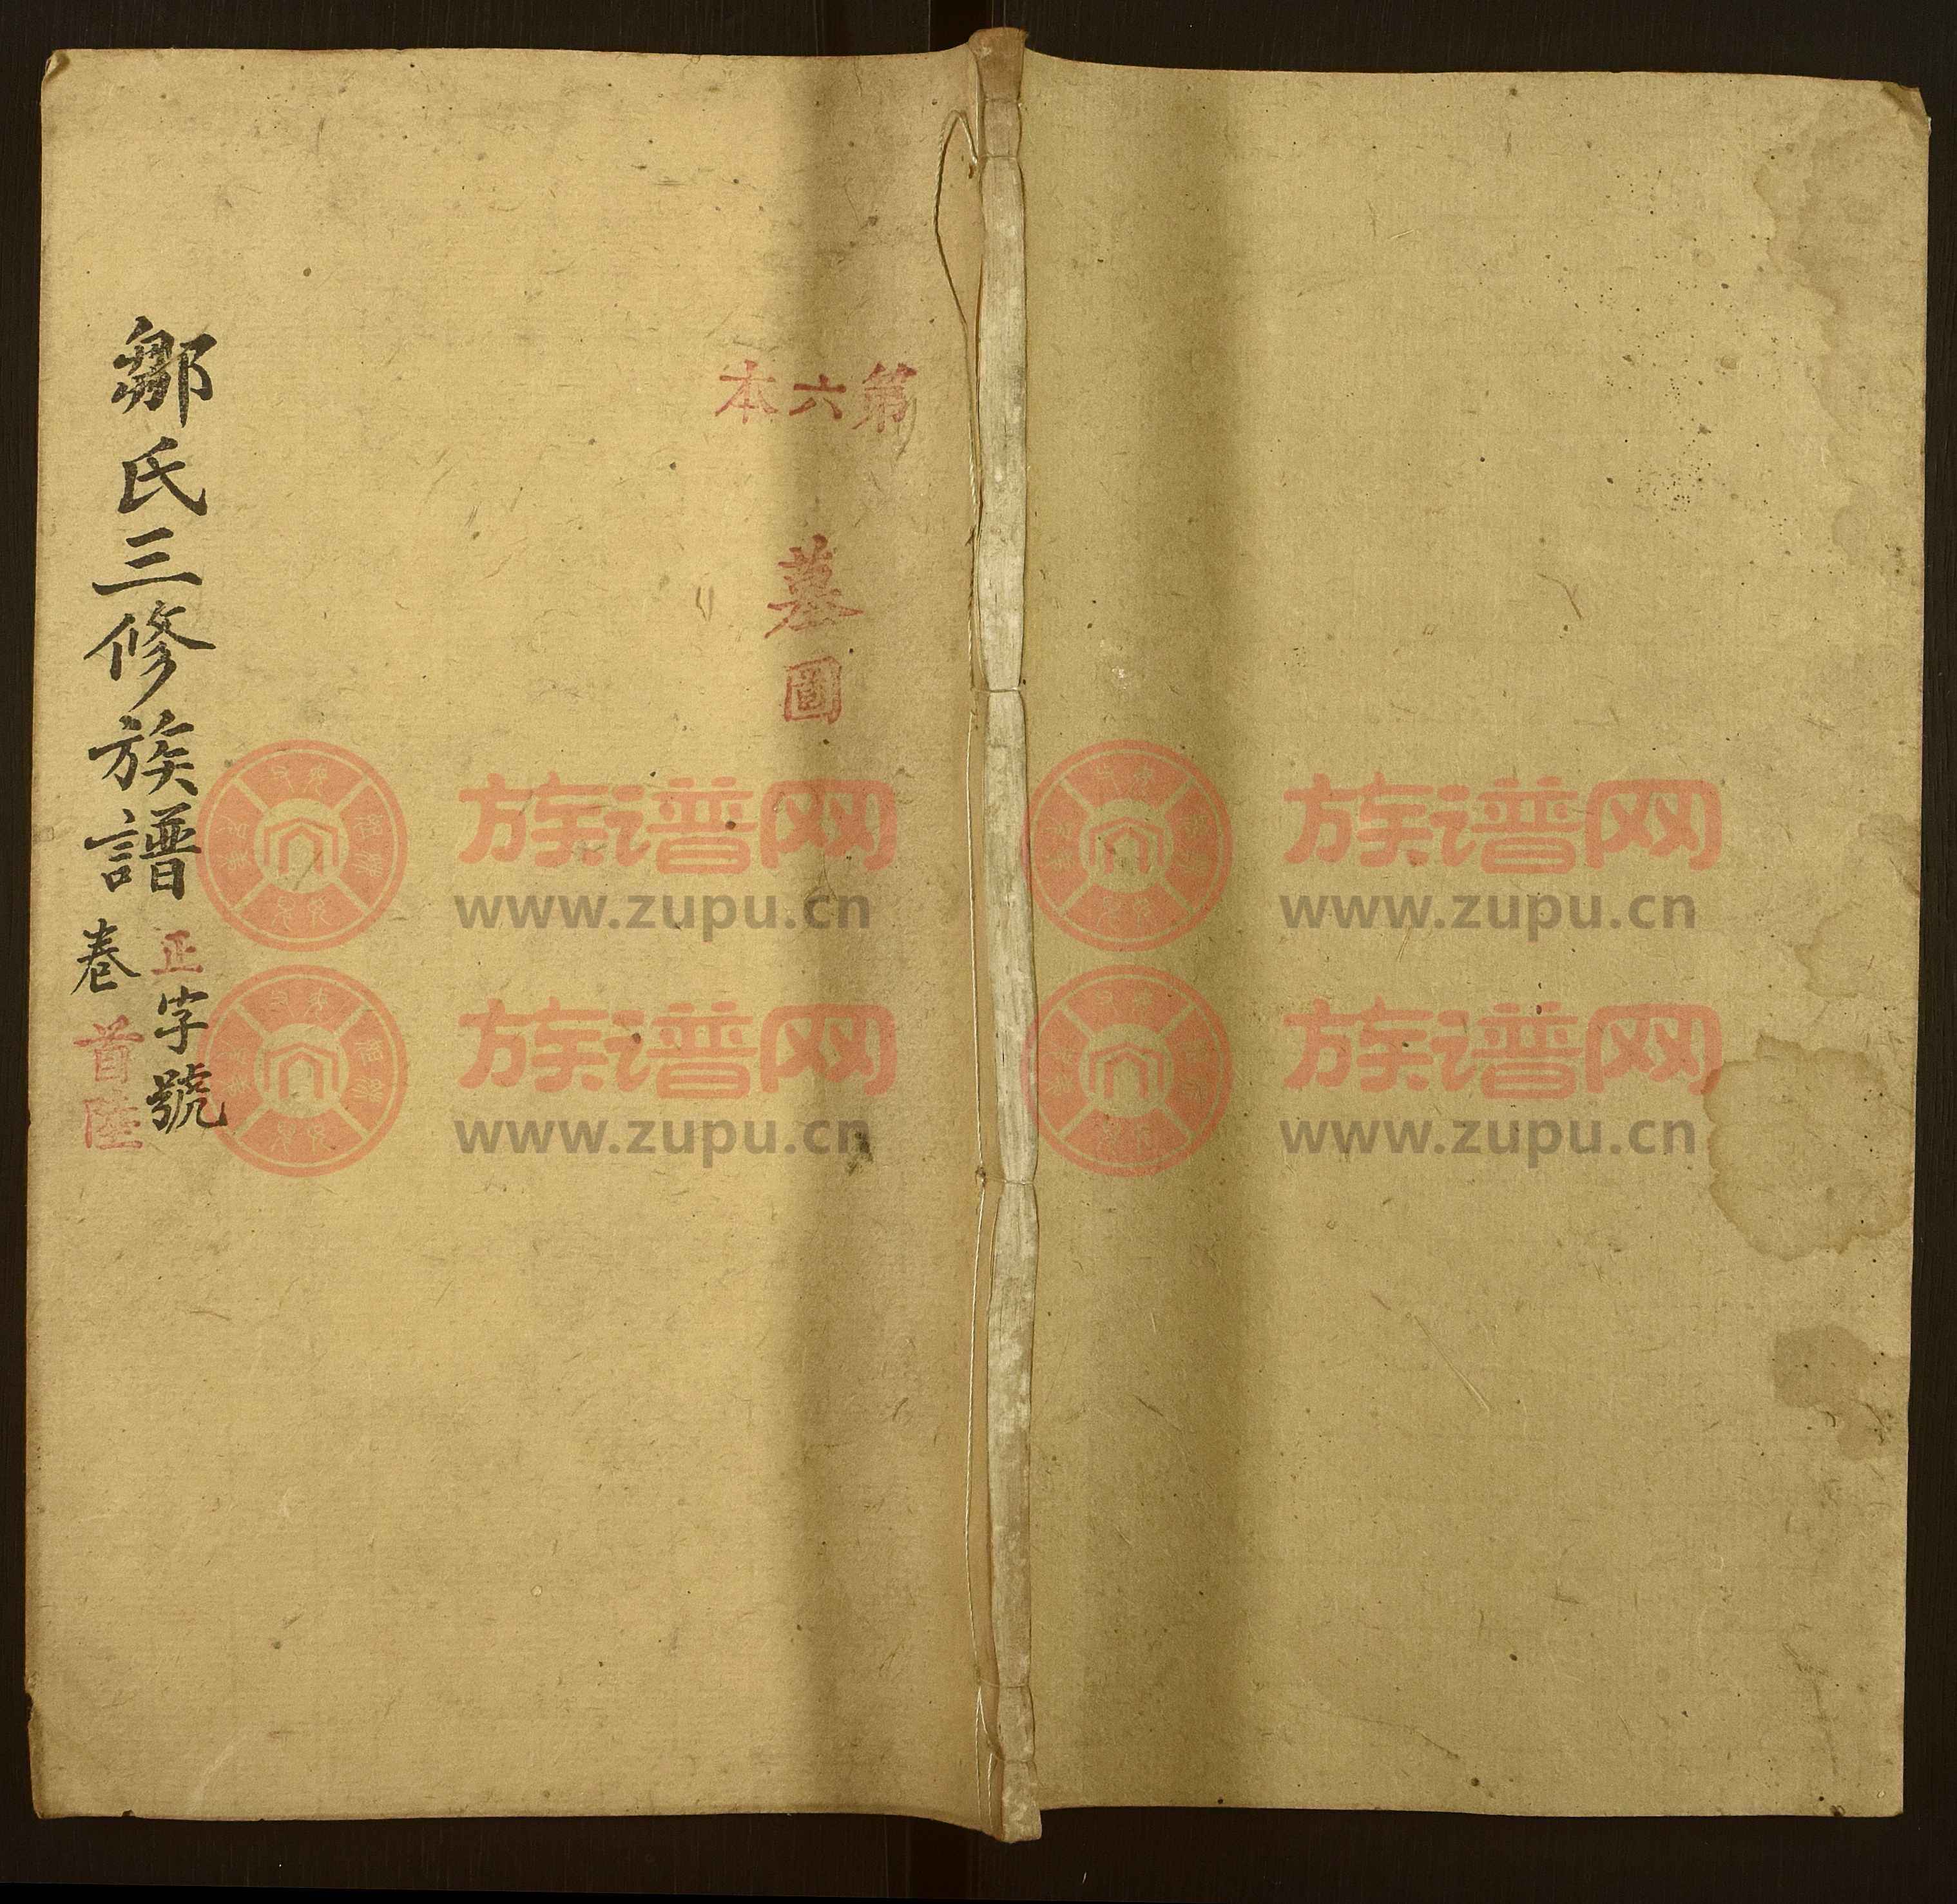 第六本
墓圖
鄒氏三修族譜
正字號
卷首陸
族谱网
www.zupu.cn
族谱网
www.zupu.cn
族谱网
www.zupu.cn
族谱网
www.zupu.cn